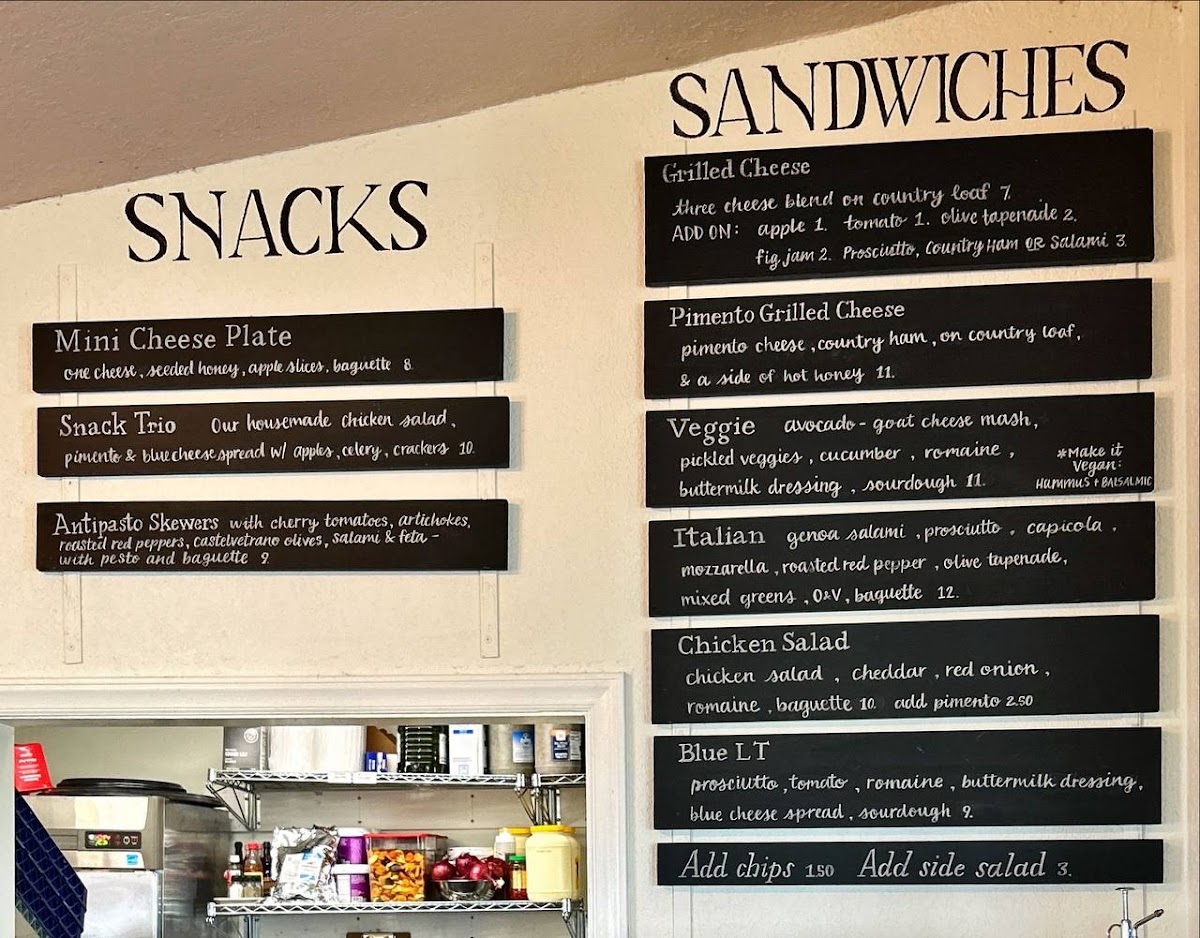 SNACKS
Mini Cheese Plate
one cheese, seeded honey, apple slices, baguette 8.
Snack Trio Our housemade chicken salad,
pimento & blue cheese spread w/ apples, celery, crackers 10.
Antipasto Skewers with cherry tomatoes, artichokes,
roasted red peppers, castelvetrano olives, salami & feta -
with pesto and baguette 9.
SANDWICHES
Grilled Cheese
three cheese blend on country loaf 7.
ADD ON: apple 1. tomato 1. olive tapenade 2.
fig jam 2. Prosciutto, Country Ham OR Salami 3.
Pimento Grilled Cheese
pimento cheese, country ham, on country loaf,
& a side of hot honey 11.
Veggie avocado - goat cheese mash,
pickled veggies, cucumber, romaine,
buttermilk dressing, sourdough 11.
*Make it
Vegan:
Hummus + BALSALMIC
Italian genoa salami, prosciutto, capicola,
mozzarella, roasted red pepper, olive tapenade,
mixed greens, O&V, baguette 12.
Chicken Salad
chicken salad, cheddar, red onion,
romaine, baguette 10. add pimento 2.50
Blue LT
prosciutto, tomato, romaine, buttermilk dressing,
blue cheese spread, sourdough 9.
Add chips 1.50 Add side salad 3.